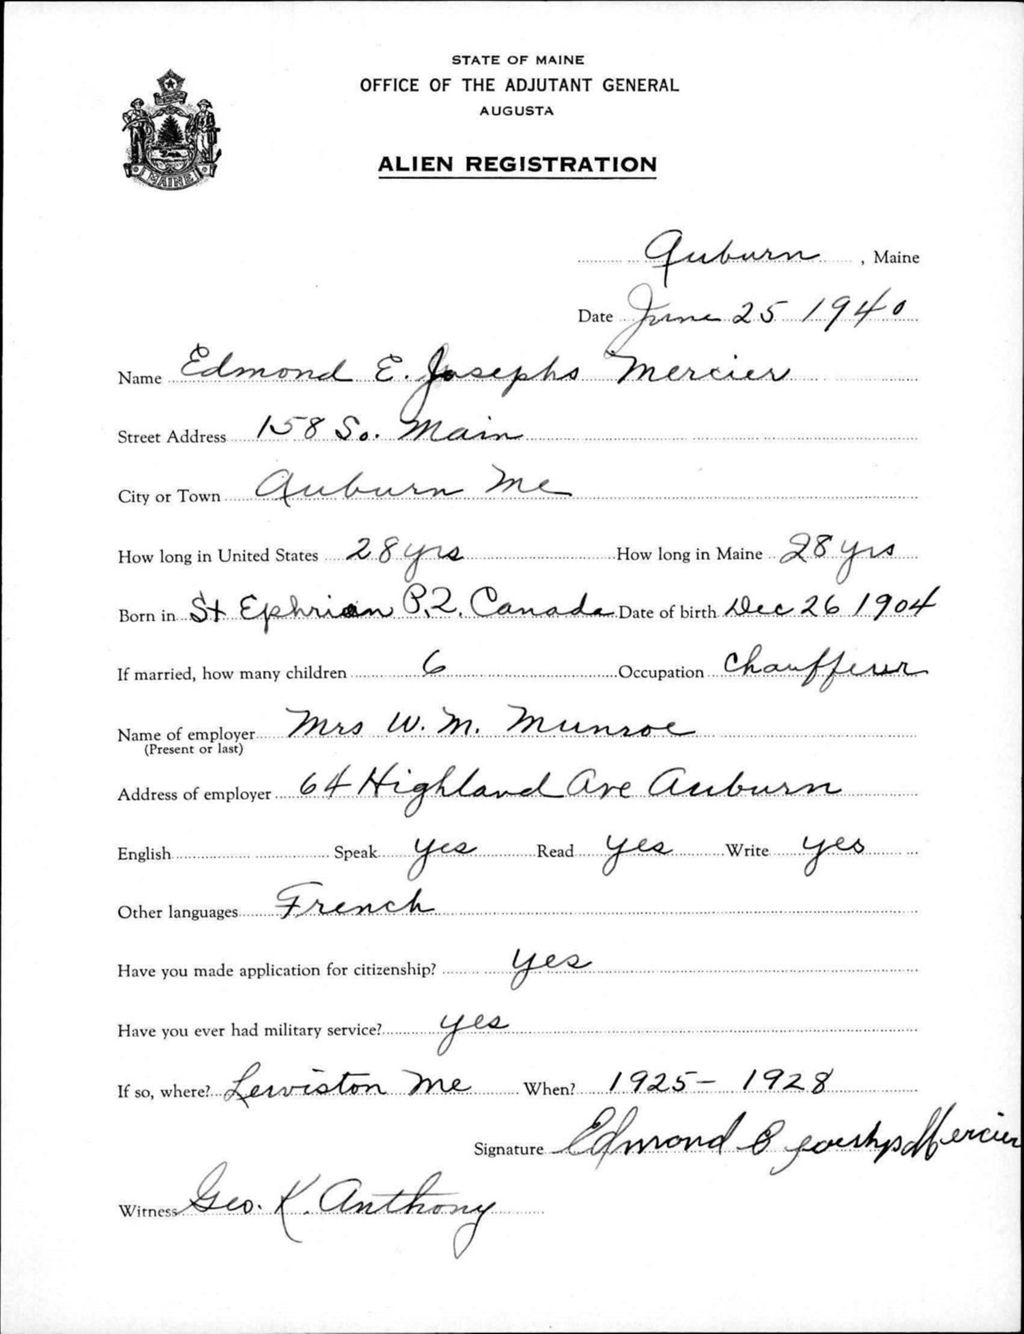 STATE OF MAINE
OFFICE OF THE ADJUTANT GENERAL
AUGUSTA
ALIEN REGISTRATION
MAINE
Auburn, Maine
Date June 25 1940
Name Edmond E. Josephs Mercier
Street Address 158 So. Main
City or Town Auburn Me
How long in United States 28 yrs How long in Maine 28 yrs
Born in St Ephrian P.Q. Canada Date of birth Dec 26 1904
If married, how many children 6 Occupation Chauffeur
Name of employer Mrs W. M. Munroe
(Present or last)
Address of employer 64 Highland Ave Auburn
English Speak yes Read yes Write yes
Other languages French
Have you made application for citizenship? yes
Have you ever had military service? yes
If so, where? Lewiston Me When? 1925 - 1928
Signature Edmond E Joeshps Mercier
Witness Geo. K. Anthony